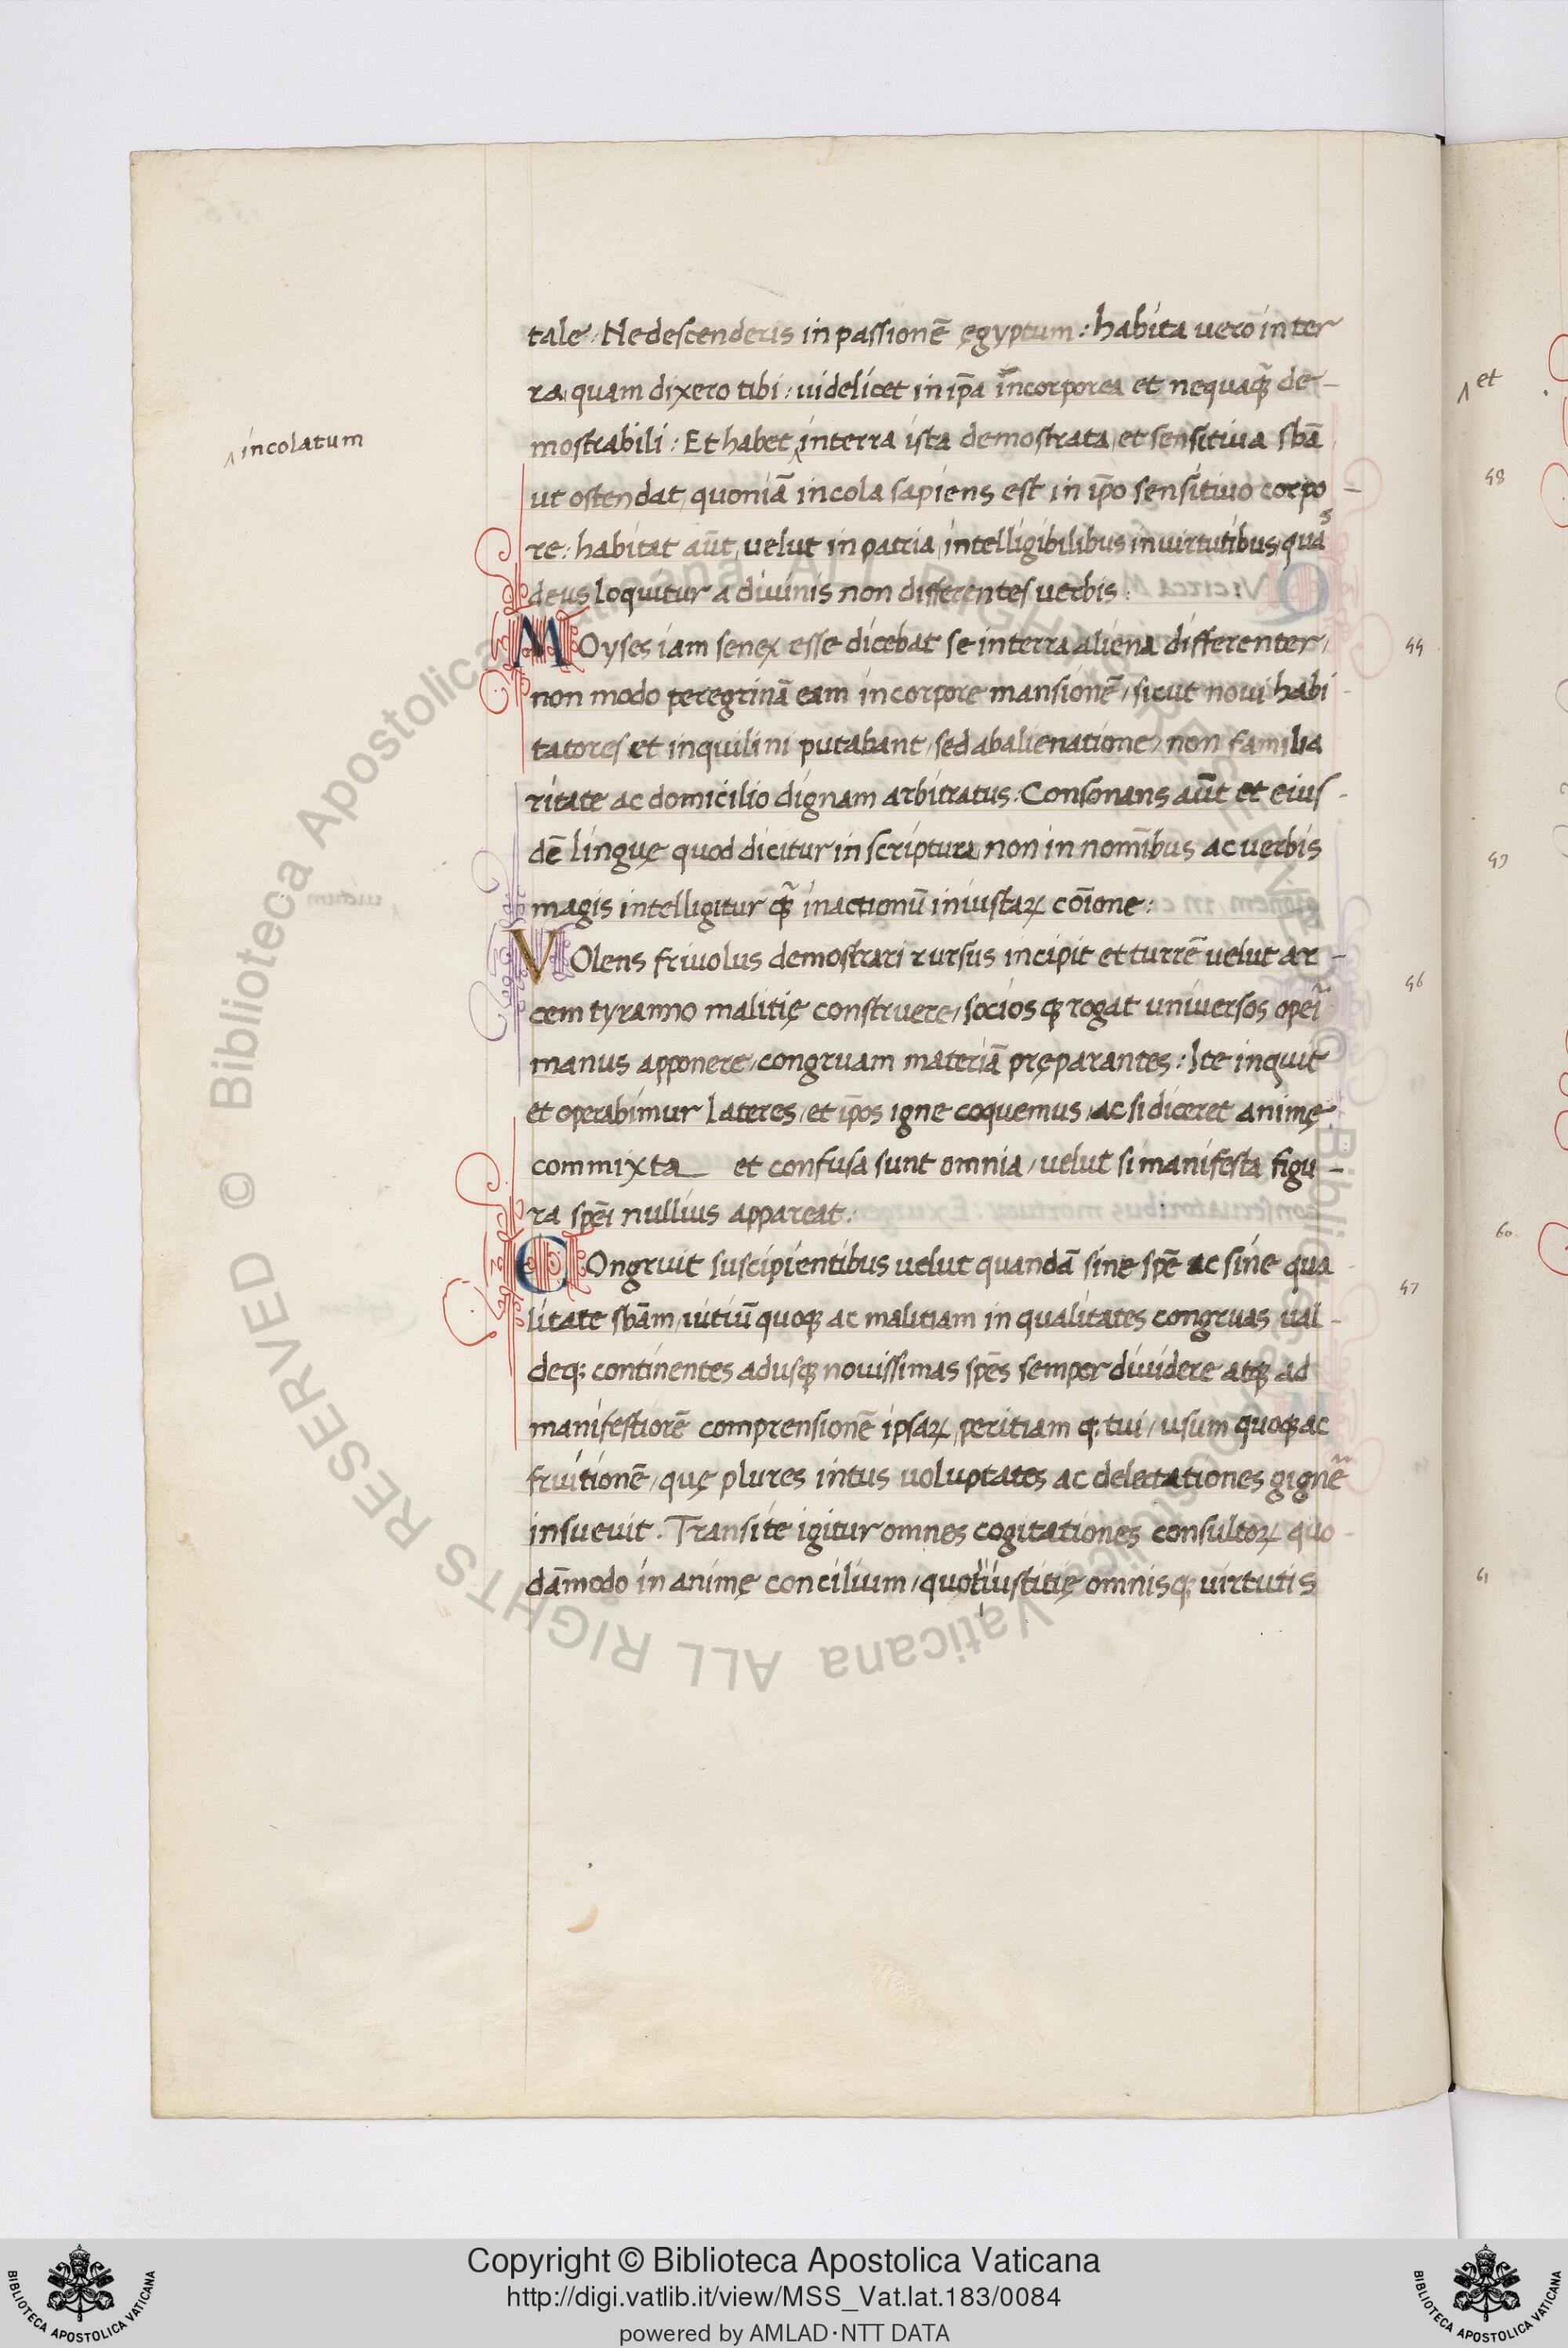 tale. Ne descenderis in passionē ęgyptum: habita vero in ter
ra quam dixero tibi: uidelicet in ip̄a incorporea et nequaq̄ de-
mostrabili: Et habet ‸ in terra ista demostrata, et sensitiua sb̄a
‸ incolatum
ut ostendat, quoniā incola sapiens est in ip̄o sensitiuo corpo-
re: habitat aūt, uelut in patria, intelligibilibus in uirtutibus, quas
deus loquitur a diuinis non differentes uerbis:
MOyses iam senex esse dicebat se in terra aliena differenter,
non modo peregrinā eam in corpore mansionē, sicut noui habi-
tatores et inquilini putabant, sed ab alienatione, non familia
ritate ac domicilio dignam arbitratus. Consonans aūt et eius-
dē linguę quod dicitur in scriptura, non in nom̄ibus ac uerbis
magis intelligitur q̄ in actionū iniustaꝝ cōione:
VOlens friuolus demostrari rursus incipit et turrē uelut ar-
cem tyranno malitię construere, socios qꝫ rogat uniuersos
manus apponere, congruam materiā pręparantes: Ite inquit
et operabimur lateres, et ip̄os igne coquemus, ac si diceret animę
commixta et confusa sunt omnia, uelut si manifesta figu-
ra sp̄ei nullius appareat:
COngruit suscipientibus uelut quandā sine sp̄e ac sine qua
litate sb̄am, uitiū quoqꝫ ac malitiam in qualitates congruas ual-
deqꝫ continentes adusqꝫ nouissimas sp̄es semper diuidere atqꝫ ad
manifestiorē comprensionē ipsaꝝ, peritiam q. tui, usum quoqꝫ ac
fruitionē, quę plures intus uoluptates ac delectationes gignē
insueuit. Transite igitur omnes cogitationes consultoꝝ quo-
dāmodo in animę concilium, quot iustitię omnisqꝫ uirtutis
44
46
47
‸ et
48
49
60
61
Copyright © Biblioteca Apostolica Vaticana
http://digi.vatlib.it/view/MSS_Vat.lat.183/0084
powered by AMLAD·NTT DATA
BIBLIOTECA APOSTOLICA VATICANA
BIBLIOTECA APOSTOLICA VATICANA
© Biblioteca Apostolica Vaticana ALL RIGHTS RESERVED
© Biblioteca Apostolica Vaticana ALL RIGHTS RESERVED